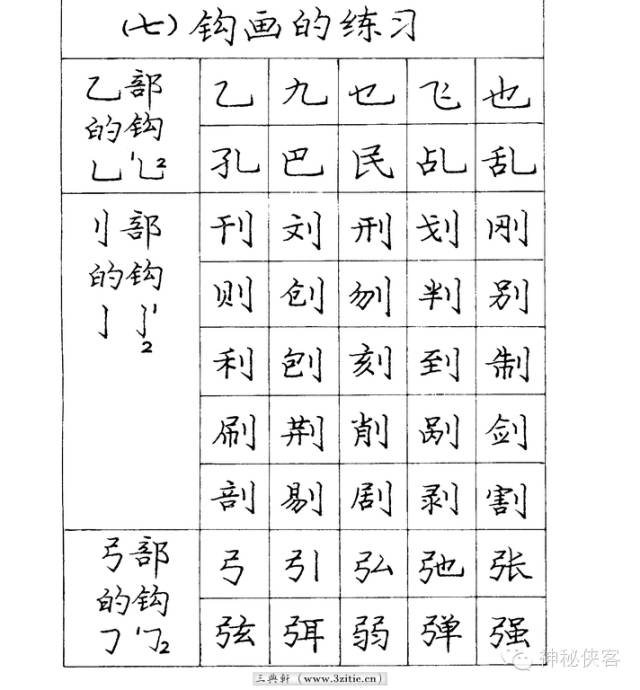 (七)钩画的练习
乙部
的钩
乚 乚12
乙 九 乜 飞 也
孔 巴 民 乩 乱
刂部
的钩
亅 亅12
刊 刘 刑 划 刚
则 创 刎 判 别
利 刨 刻 到 制
刷 荆 削 剐 剑
剖 剔 剧 剥 割
弓部
的钩
㇆ ㇆12
弓 引 弘 弛 张
弦 弭 弱 弹 强
神秘侠客
三典轩(www.3zitie.cn)